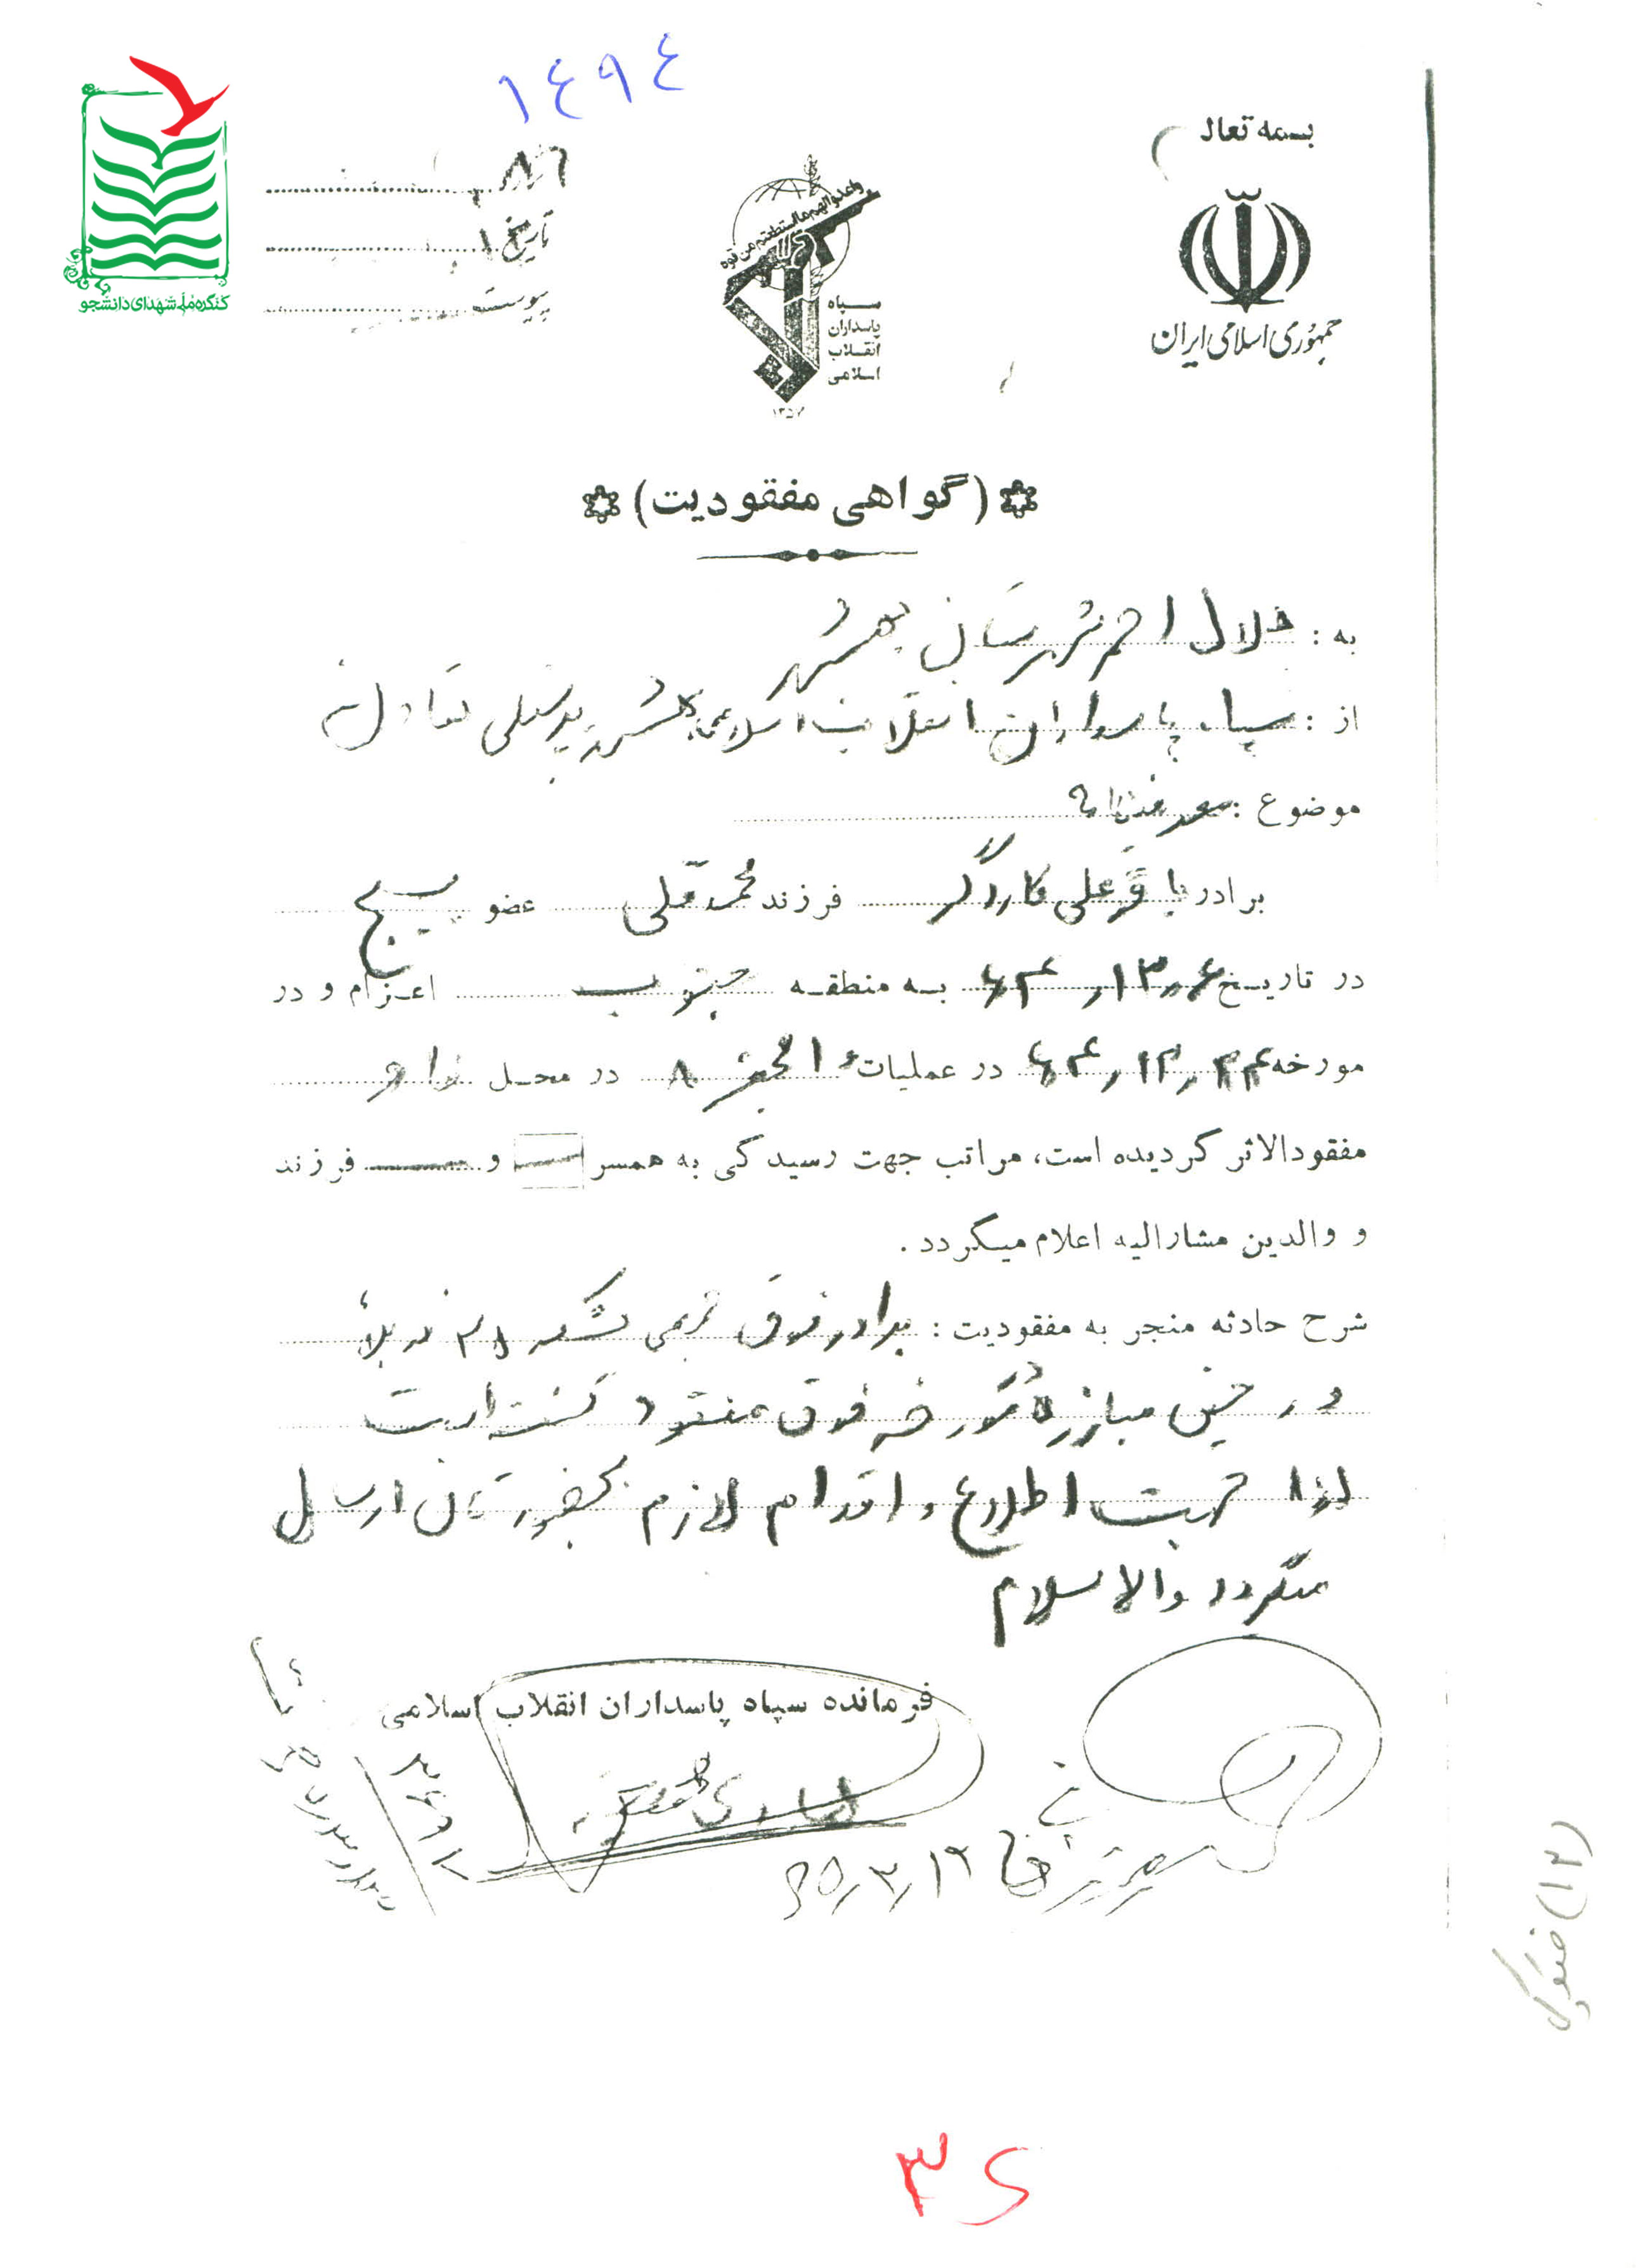 ۱۴۹۴
بسمه تعالی
جمهوری اسلامی ایران
واعدوا لهم ما استطعتم من قوه
سپاه
پاسداران
انقلاب
اسلامی
۱۳۵۷
تاریخ
پیوست
کنگره ملی شهدای دانشجو
(گواهی مفقودیت)
به : هلال احمر شهرستان بهشهر
از : سپاه پاسداران انقلاب اسلامی بهشهر پرسنلی تعاون
موضوع : معرفینامه
برادر باقرعلی کارگر فرزند محمدقلی عضو بسیج
در تاریخ ۶۴٫۱۳٫۰۶ به منطقه جنوب اعزام و در
مورخه ۶۴٫۱۲٫۲۴ در عملیات والفجر ۸ در محل فاو
مفقودالاثر گردیده است، مراتب جهت رسیدگی به همسر و فرزند
و والدین مشارالیه اعلام میگردد .
شرح حادثه منجر به مفقودیت : برادر فوق لشکر ۲۵ کربلا
در حین مبارزه مورخه فوق مفقود گشته است
لذا جهت اطلاع و اقدام لازم بحضورتان ارسال
میگردد والاسلام
فرمانده سپاه پاسداران انقلاب اسلامی
۶۵٫۳٫۱۹
(۱۲)
۳۶